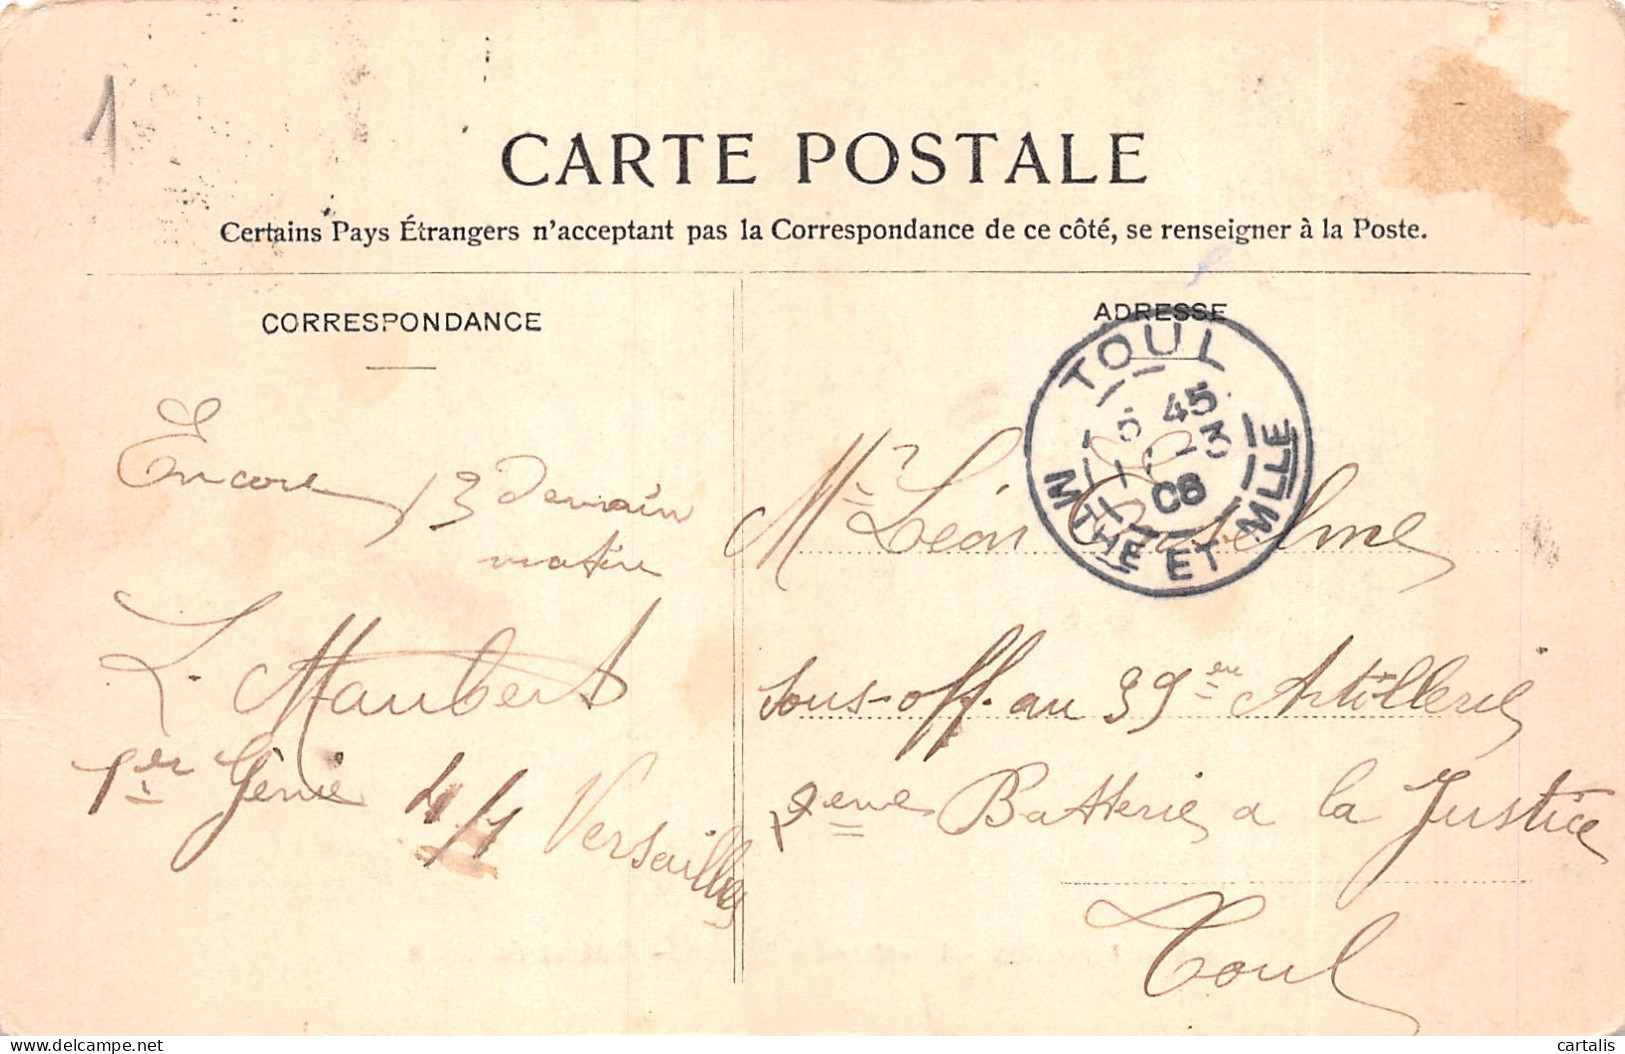 1
CARTE POSTALE
Certains Pays Étrangers n'acceptant pas la Correspondance de ce côté, se renseigner à la Poste.
CORRESPONDANCE
Encore 13 demain
matin
L. Maubert
1er Génie 4/1 Versailles
ADRESSE
TOUL
45
3
08
MTHE ET MLLE
Mr Léon Anselme
sous-off. au 39eme Artillerie
9eme Batterie a la Justice
Toul
delcampe.net
cartalis